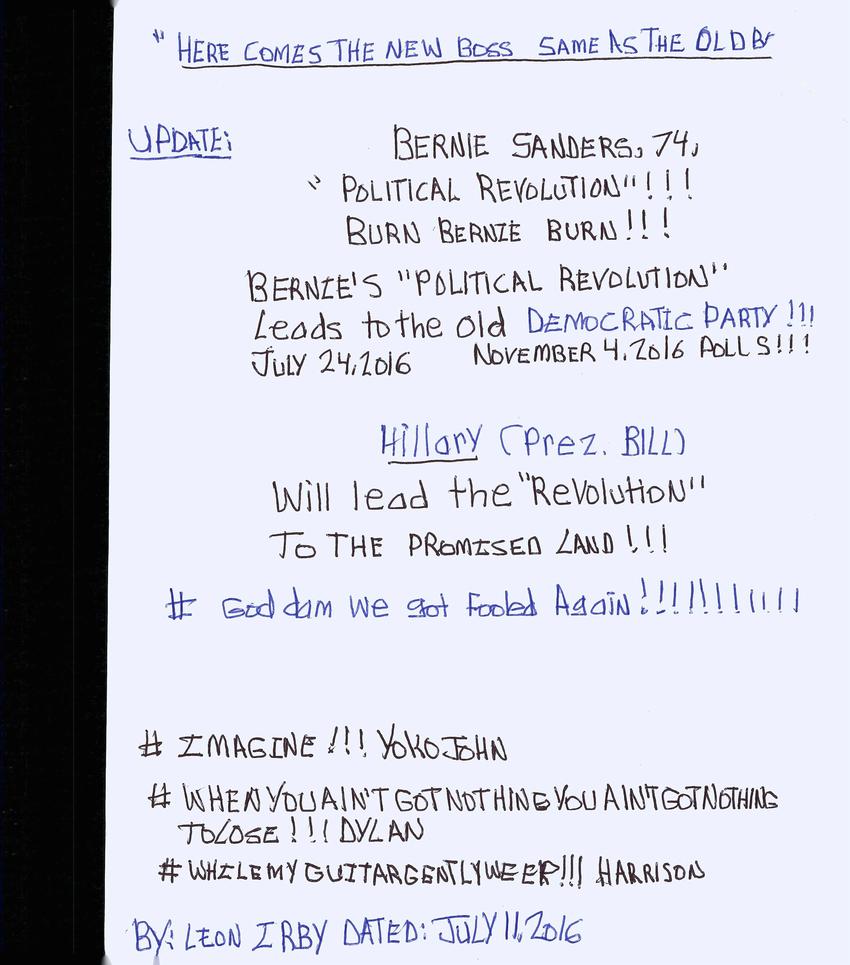 " HERE COMES THE NEW BOSS SAME AS THE OLD
UPDATE: BERNIE SANDERS, 74,
" POLITICAL REVOLUTION"!!!
BURN BERNIE BURN!!!
BERNIE'S "POLITICAL REVOLUTION"
Leads to the old DEMOCRATIC PARTY !!!
JULY 24, 2016 NOVEMBER 4, 2016 POLLS!!!
Hillary (Prez. BILL)
Will lead the "Revolution"
TO THE PROMISED LAND !!!
# God dam We got Fooled Again!!!!!!!!!!!
# IMAGINE !!! YOKO JOHN
# WHEN YOU AIN'T GOT NOTHING YOU AIN'T GOT NOTHING
TO LOSE !!! DYLAN
# WHILE MY GUITAR GENTLY WEEP!!! HARRISON
BY: LEON IRBY DATED: JULY 11, 2016